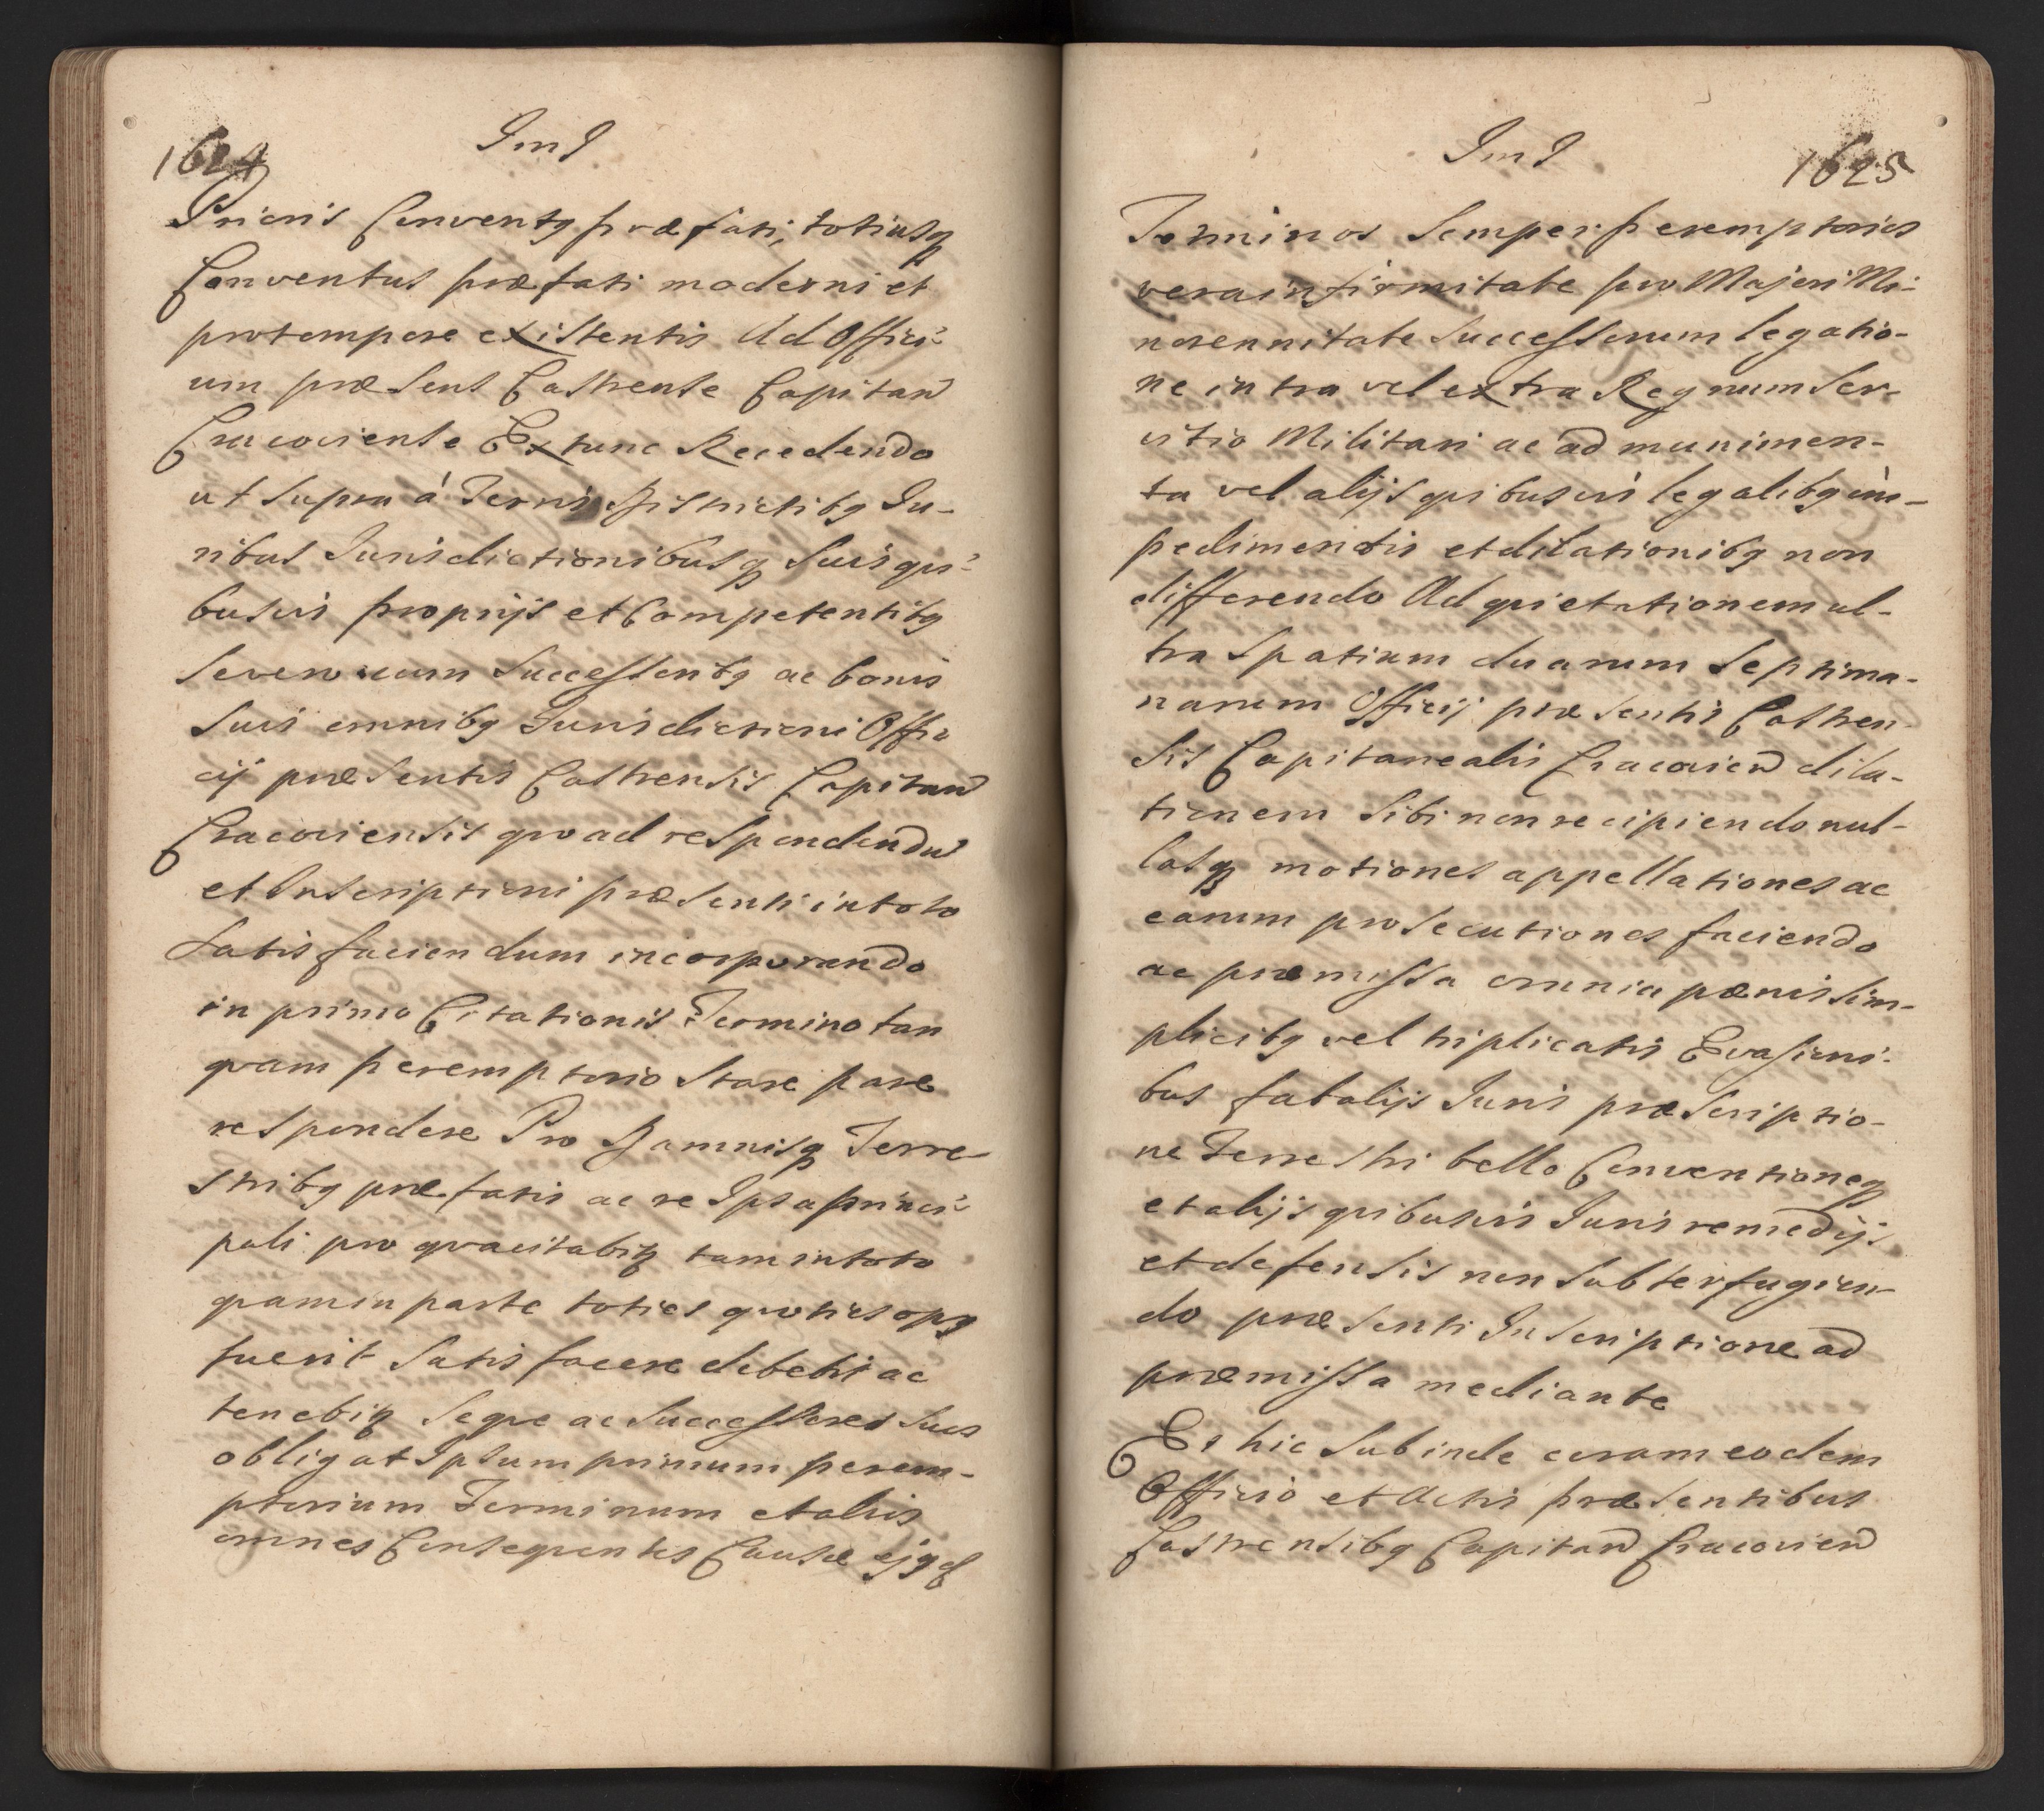 1624
Im J
Prioris Conventq præfati, totiusq
Conventus præfati moderni et
pro tempore existentis Ad Offici-
um præsens Castrense Capitan
Cracoviense Ex tunc Recedendo
ut supra á Terris Districtibq Ju-
ribus Jurisdictionibusq suis qui-
busvis proprijs et Competentibq
seven cum Successoribq ac bonis
suis omnibq Jurisdictioni Offi-
cij præsentis Castrensis Capitan
Cracoviensis quoad respondendu
et Inscriptioni præsenti in toto
satisfaciendum incorporando
in primo Citationis Termino tan
quam peremptorio stare pare
respondere Pro Damnisq Terre-
stribq præfatis ac re Ipsa princi-
pali pro qva citabit tam in toto
quam in parte toties quoties opq
fuerit satisfacere debebit ac
tenebit Seque ac Successores suos
obligat Ipsum primum perem-
ptorium Terminum et alios
omnes Consequentes Causæ ejq
Im J
1625
Terminos semper peremptorios
vera infirmitate pro Majori Mi-
norennitate Successorum legatio-
ne intra vel extra Regnum ser-
vitio Militari ac ad munimen-
ta vel alijs quibusvis legalibq im-
pedimentis et dilationibq non
differendo Ad quietationem ul-
tra spatium duarum septima-
narum Officij præsentis Castren-
sis Capitanealis Cracovien dila-
tionem sibi non recipiendo nul-
lasq motiones appellationes ac
earum prosecutiones faciendo
ac præmissa omnia pænis sim-
plicibq vel triplicatis Evasioni-
bus fatalijs Juris præscriptio-
ne Terrestri bello Conventioneq
et alijs quibusvis Juris remedijs
et defensis non subterfugien-
do præsenti Inscriptione ad
præmissa mediante
Et hic subinde coram eodem
Officio et Actis præsentibus
Castrensibq Capitan Cracovien